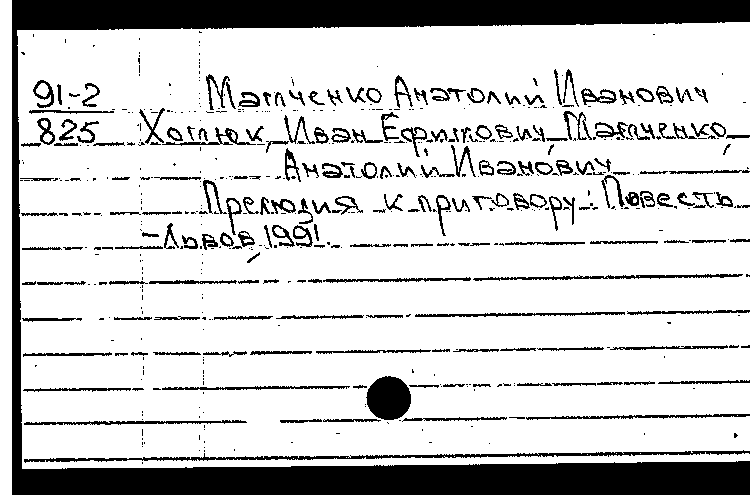 91-2
825
Матченко Анатолий Иванович
Хотлюк, Иван Ефимович, Матченко,
Анатолий Иванович
Прелюдия к приговору: Повесть
-Львов, 1991.